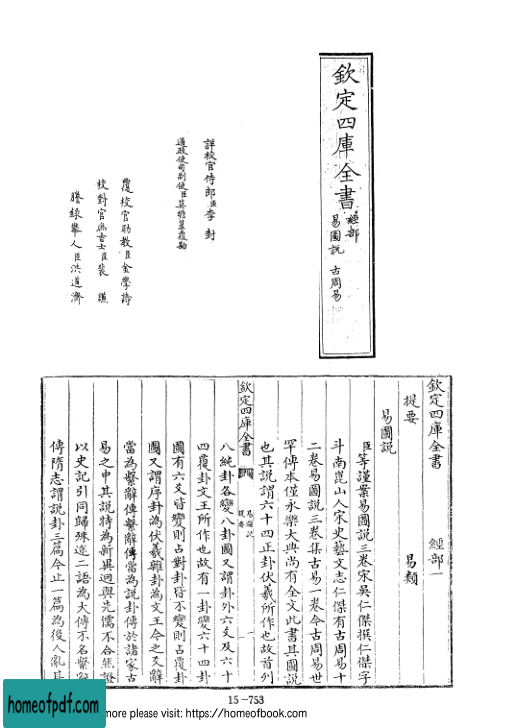 欽定四庫全書 經部
易圖說 古周易
詳校官侍郎臣李封
通政使司副使臣莫瞻菉覆勘
覆校官助教臣金學詩
校對官庶吉士臣裴謙
謄錄舉人臣洪道濟
欽定四庫全書 經部一
提要 易類
易圖說
臣等謹案易圖說三卷宋吳仁傑撰仁傑字
斗南崑山人宋史藝文志仁傑有古周易十
二卷易圖說三卷集古易一卷今古周易世
罕傳本僅永樂大典尚有全文此書其圖說
也其說謂六十四正卦伏羲所作也故首列
欽定四庫全書 易圖說 提要 一
八純卦各變八卦圖又謂卦外六爻及六十
四覆卦文王所作也故有一卦變六十四卦
圖有六爻皆變則占對卦皆不變則占覆卦
圖又謂序卦為伏羲雜卦為文王今之爻辭
當為繫辭傳繫辭傳當為說卦傳於諸家古
易之中其說特為新異迥與先儒不合然證
以史記引同歸殊途二語為大傳不名繫辭
傳隋志謂說卦三篇今止一篇為後人亂其
15-753
homeofpdf.com
more please visit: https://homeofbook.com